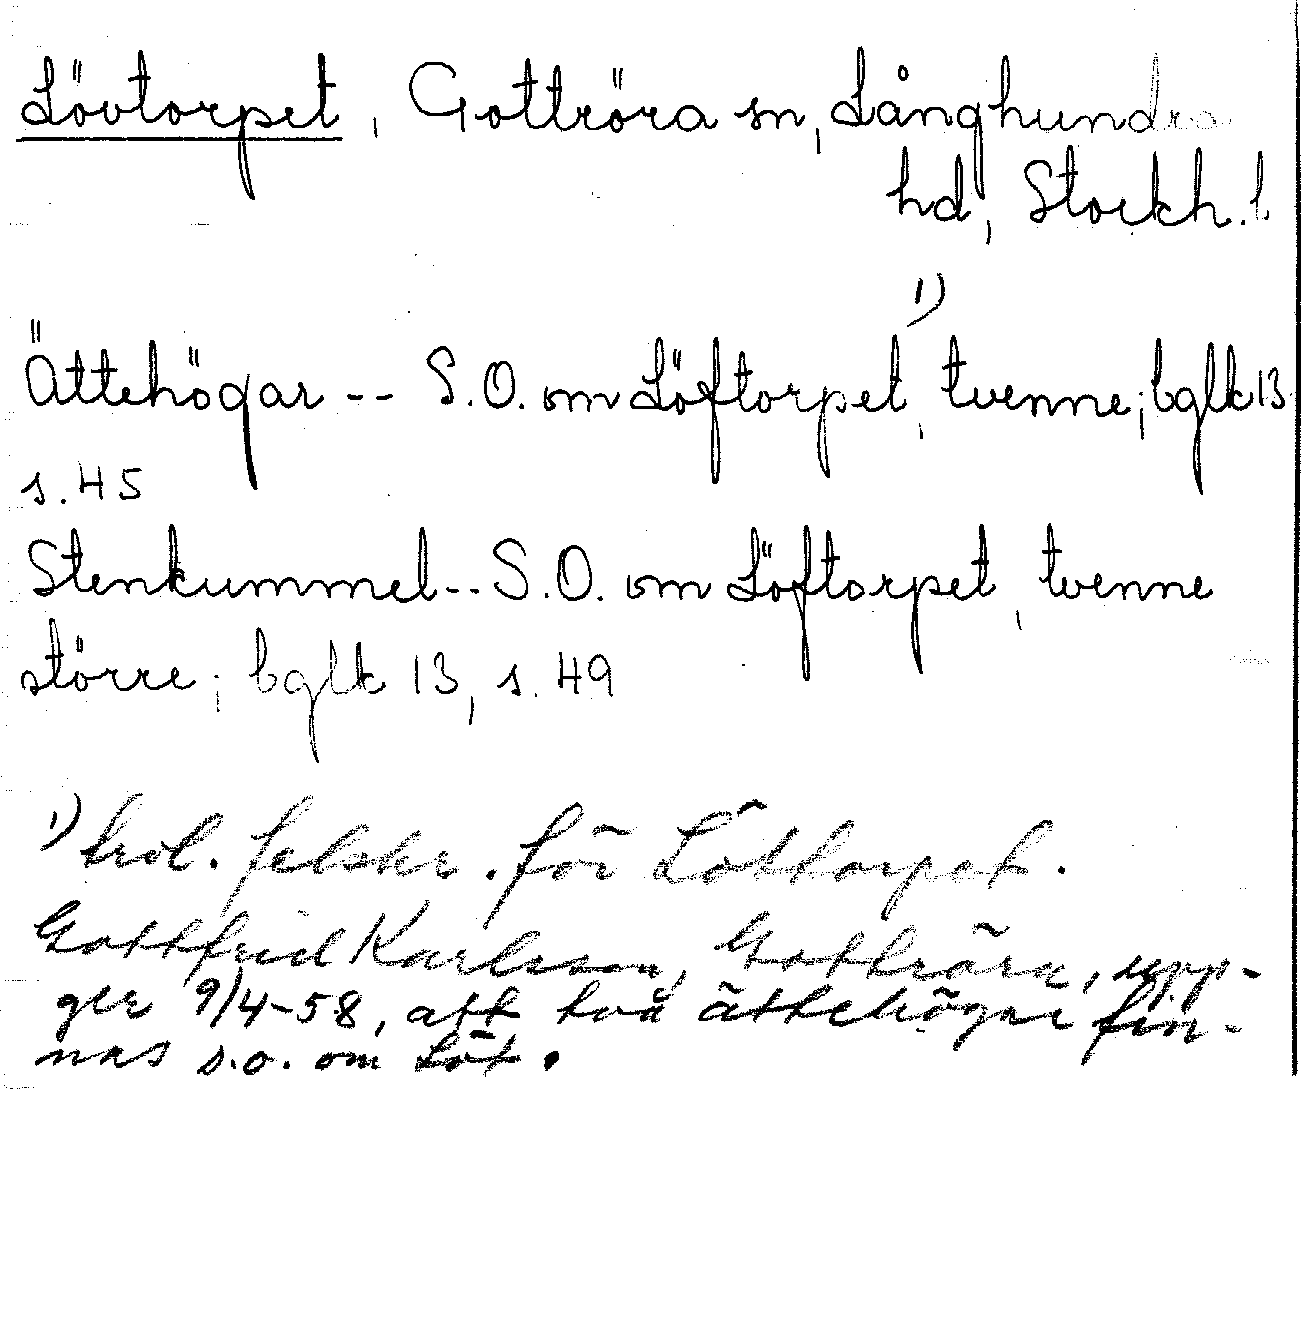 Lövtorpet, Gottröra sn, Långhundra
hd, Stockh. l
Ättehögar -- S.O. om Löftorpet ¹⁾, tvenne; bglk 13
s. 45
Stenkummel -- S.O. om Löftorpet, tvenne
större; bglk 13, s. 49
¹⁾ trol. felskr. för Löttorpet.
Gottfrid Karlsson, Gottröra, upp-
ger 9/4-58, att två ättehögar fin-
nas s.o. om Löt.